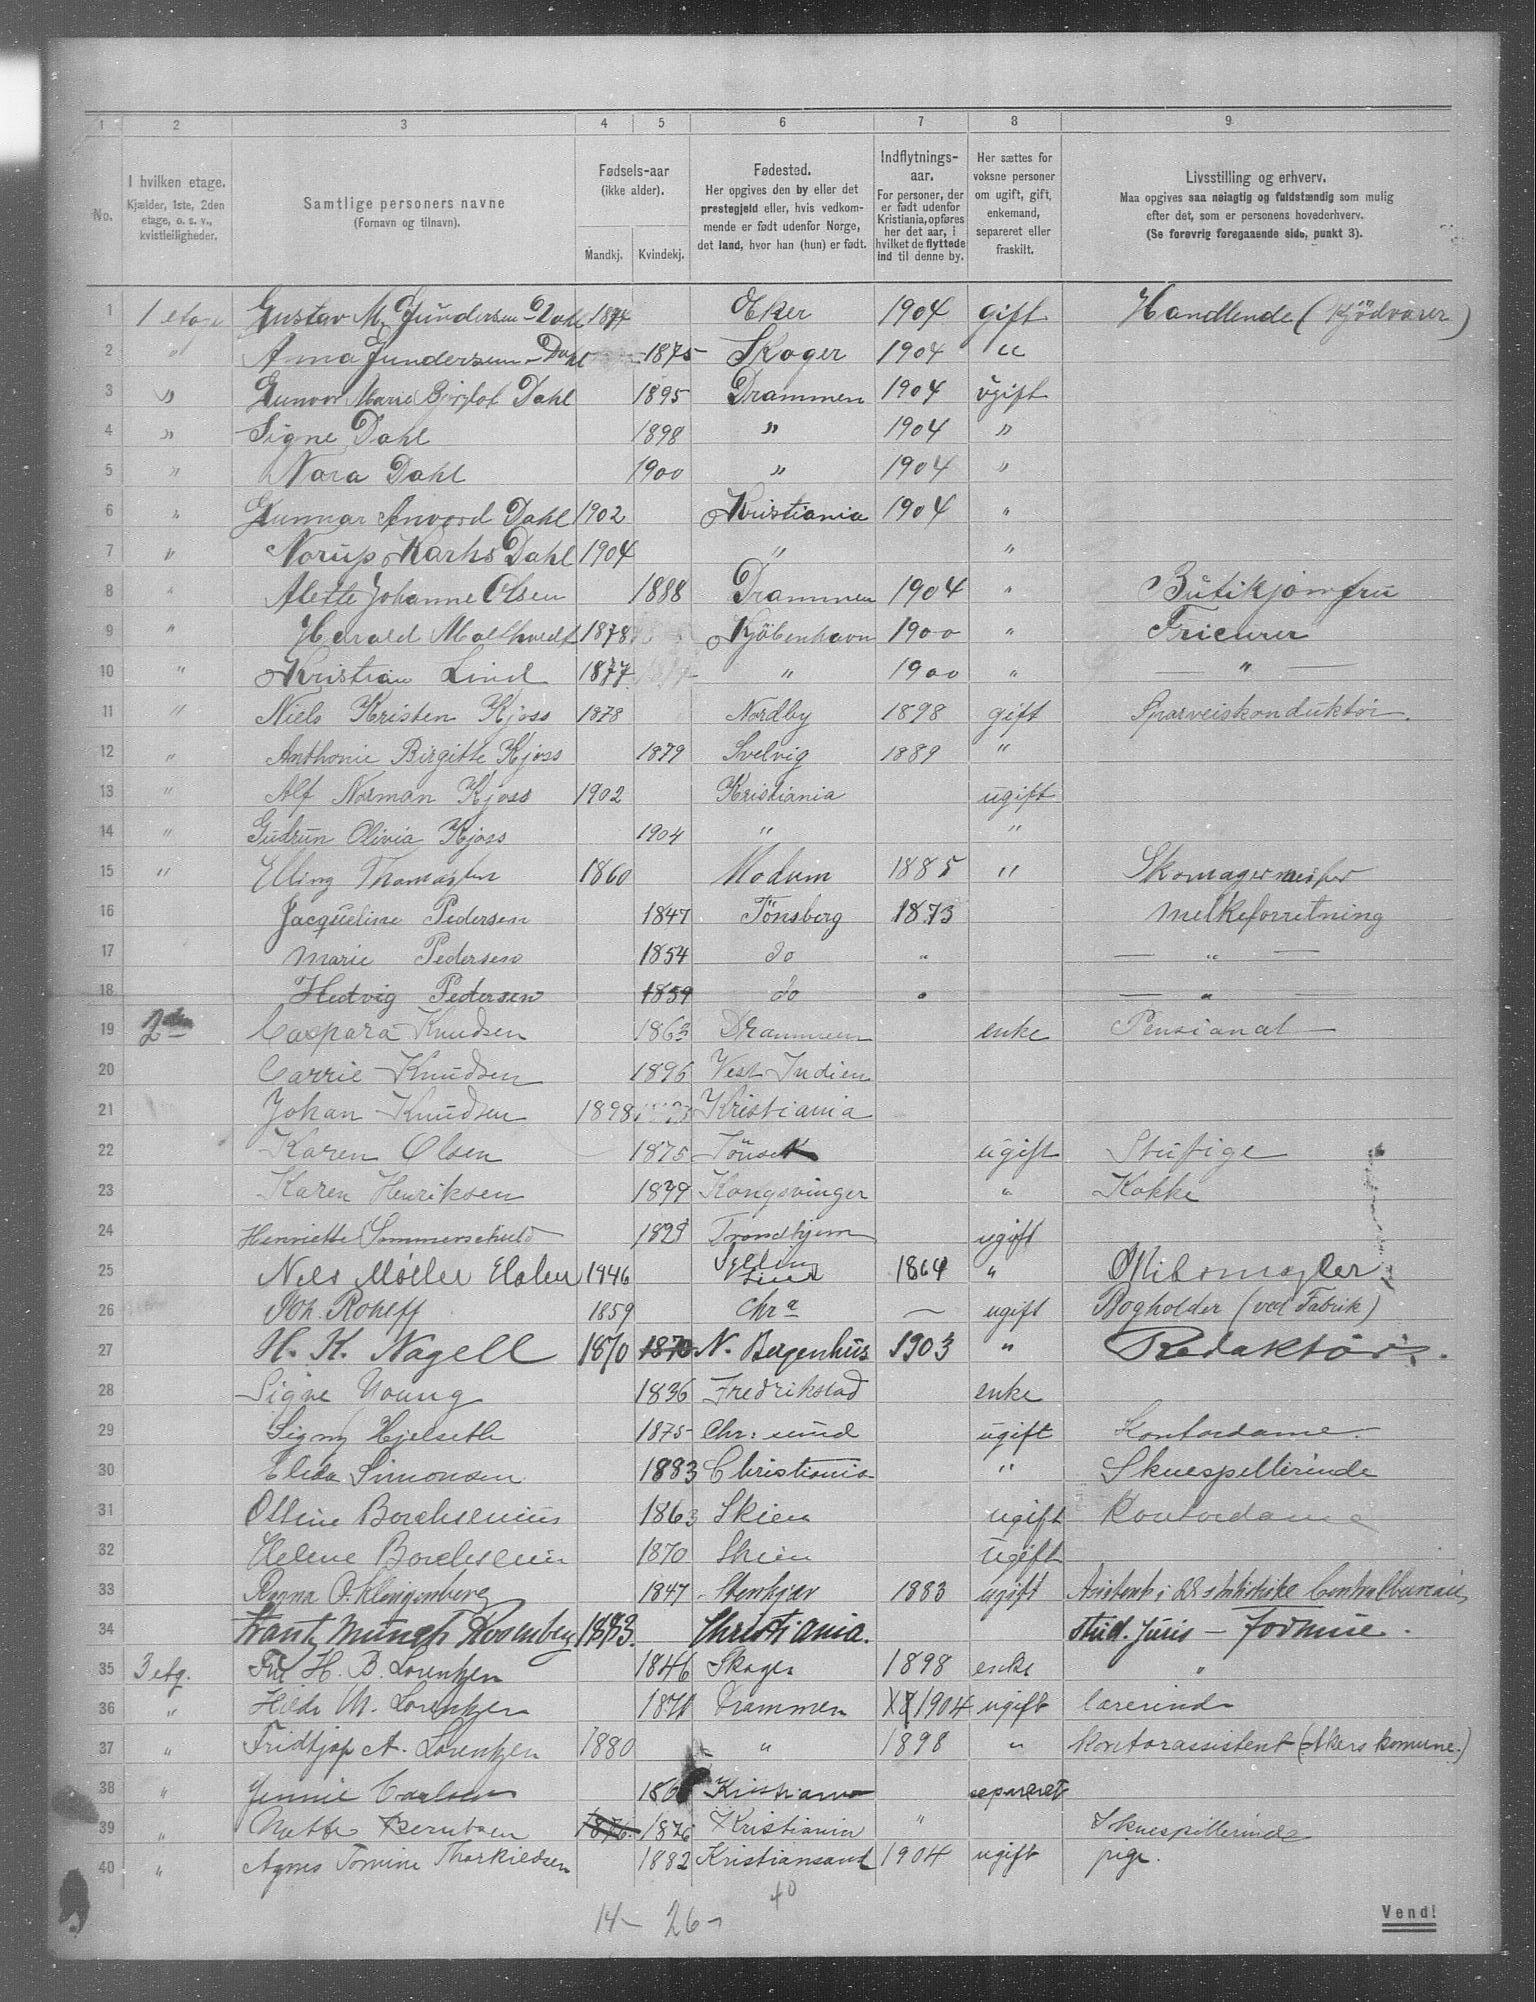 1 2 3 4 5 6 7 8 9
No.
I hvilken etage.
Kjælder, 1ste, 2den etage, o. s. v., kvistleiligheder.
Samtlige personers navne
(Fornavn og tilnavn).
Fødsels-aar
(ikke alder).
Mandkj. Kvindekj.
Fødested.
Her opgives den by eller det prestegjeld eller, hvis vedkommende er født udenfor Norge, det land, hvor han (hun) er født.
Indflytnings-aar.
For personer, der er født udenfor Kristiania, opføres her det aar, i hvilket de flyttede ind til denne by.
Her sættes for voksne personer om ugift, gift, enkemand, separeret eller fraskilt.
Livsstilling og erhverv.
Maa opgives saa nøiagtig og fuldstændig som mulig efter det, som er personens hovederhverv.
(Se forøvrig foregaaende side, punkt 3).
1 1 etage Gustav M. Gundersen-Dahl Eker 1904 gift Handlende (Kjödvarer)
2 " Anna Gundersen-Dahl 1875 Skoger 1904 "
3 " Gunvor Marie Dahl 1895 Drammen 1904 ugift
4 " Signe Dahl 1898 " 1904 "
5 " Nora Dahl 1900 " 1904 "
6 " Gunnar Dahl 1902 Kristiania 1904 "
7 " Norup Dahl 1904 " "
8 " Alette Johanne Olsen 1888 Drammen 1904 " Butikjomfru
9 " Harald 1878 Kjöbenhavn 1900 " Friсürer
10 " Kristian Lind 1877 " 1900 " "
11 " Niels Kristen Kjoss 1878 Nordby 1898 gift Sporveiskonduktör.
12 " Anthonie Birgitte Kjoss 1879 Svelvig 1889 "
13 " Alf Norman Kjoss 1902 Kristiania ugift
14 " Gudrun Olivia Kjoss 1904 " "
15 " Elling Thomassen 1860 Modum 1885 " Skomagermester
16 Jacqueline Pedersen 1847 Tönsberg 1873 Melkeforretning
17 Marie Pedersen 1854 do " "
18 Hedvig Pedersen 1859 do " "
19 2den Caspara Knudsen 1863 Drammen enke Pensionat
20 Carrie Knudsen 1896 Vest Indien
21 Johan Knudsen 1898 Kristiania
22 Karen Olsen 1875 ugift Stupige
23 Karen Henriksen 1879 Kongsvinger " Kokke
24 Henriette Sommerschield 1829 Trondhjem ugift
25 Nels Møller 1846 1864 "
26 Joh. Roheff 1859 Chra — ugift Bogholder (ved Fabrik)
27 H. K. Nagell 1870 1870 N. Bergenhus 1903 " Redaktör.
28 Signe Young 1836 Fredrikstad enke
29 Signy Hjelseth 1875 Chr: sund ugift Kontordame.
30 Elida Simonsen 1883 Christiania " Skuespillerinde
31 Ottine Borchsenius 1863 Skien ugift Kontordame
32 Helene Borchsenius 1870 Skien ugift
33 Klingenberg 1847 Stenkjær 1883 ugift Assistent i det statistiske Centralbureau
34 Frantz Münch Rosenberg 1883. Christiania. Stud. Juris — Formue.
35 3 etg. Fru H. B. Lorentzen 1846 Skoger 1898 enke "
36 " Hilda M. Lorentzen 1871 Drammen 1904 ugift lærerinde
37 " Fridtjop A. Lorentzen 1880 " 1898 " Kontorassistent (Akers komune.)
38 " Jennie Carlsen Kristiania separeret
39 " Berntsen 1876. 1876 Kristiania " Skuespillerinde
40 " Agnes Tomine Thorkildsen 1882 Kristiansand 1904 ugift pige.
14 – 26 –
40
Vend!